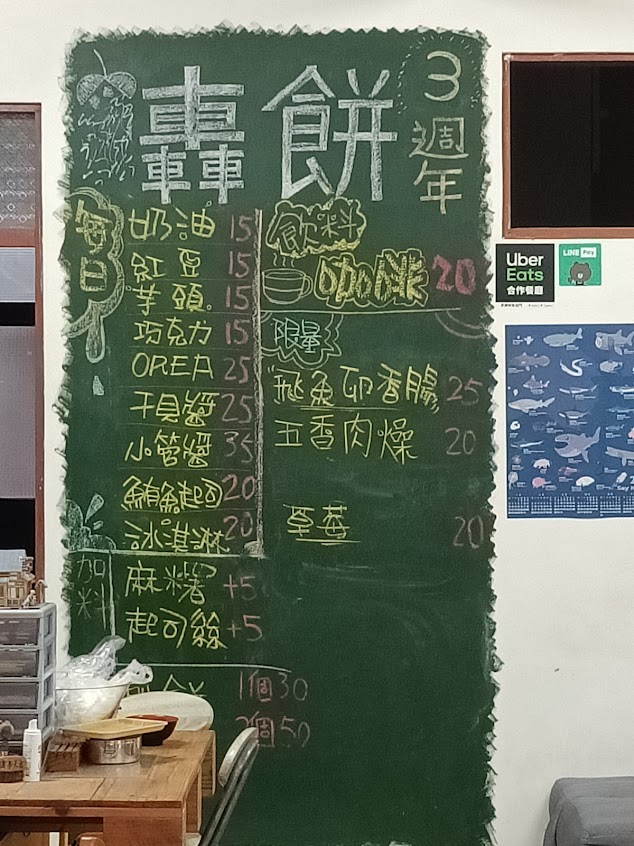 轟餅
3週年
每日
奶油 15
紅豆 15
芋頭 15
巧克力 15
OREA 25
干貝醬 25
小管醬 35
鮪魚起司 20
冰淇淋 20
加料
麻糬 +5
起司絲 +5
1個30
2個50
飲料
咖啡 20
限量
"飛魚卵香腸" 25
五香肉燥 20
草莓 20
Uber
Eats
合作餐廳
LINE Pay